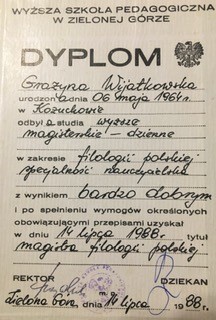 WYŻSZA SZKOŁA PEDAGOGICZNA
W ZIELONEJ GÓRZE
DYPLOM
Grażyna Wijatkowska
urodzona dnia 06 maja 1964 r.
w Kożuchowie
odbył a studia wyższe
magisterskie - dzienne
w zakresie filologii polskiej
specjalność nauczycielska
z wynikiem bardzo dobrym
i po spełnieniu wymogów określonych
obowiązującymi przepisami uzyskał
w dniu 14 lipca 1988. r. tytuł
magistra filologii polskiej
REKTOR
m.p.
DZIEKAN
Zielona Góra, dnia 14 lipca 1988 r.